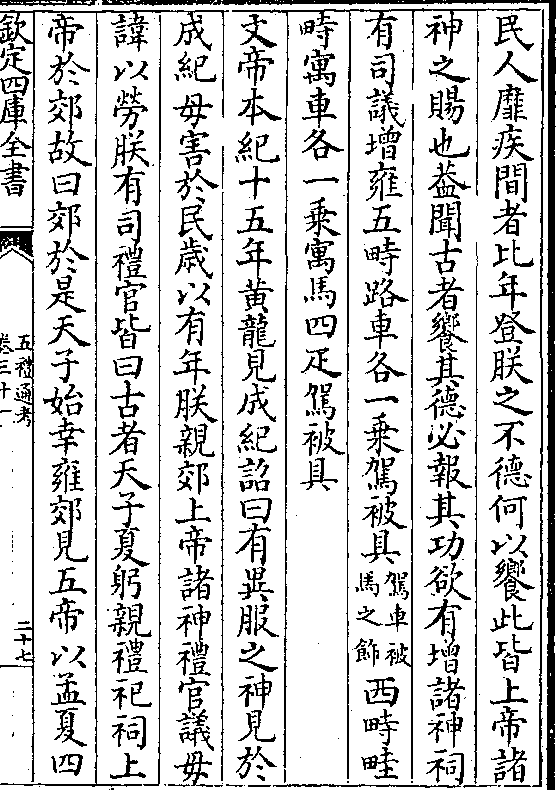 民人靡疾間者比年登朕之不德何以饗此皆上帝諸
神之賜也葢聞古者饗其德必報其功欲有增諸神祠
有司議增雍五畤路車各一乗駕被具駕車被馬之飾西畤畦
畤寓車各一乗寓馬四疋駕被具
文帝本紀十五年黄龍見成紀詔曰有異服之神見於
成紀毋害於民歳以有年朕親郊上帝諸神禮官議毋
諱以勞朕有司禮官皆曰古者天子夏躬親禮祀祠上
帝於郊故曰郊於是天子始幸雍郊見五帝以孟夏四
欽定四庫全書
五禮通考
卷三十一
二十七